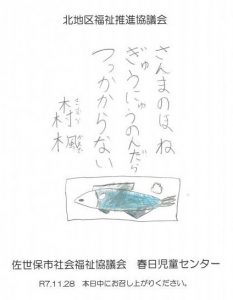 北地区福祉推進協議会
さんまのほね
ぎゅうにゅうのんだら
つっかからない
佐世保市社会福祉協議会　春日児童センター
R7.11.28　本日中にお召し上がりください。